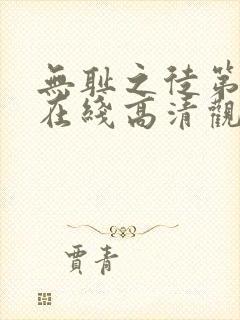 無耻之徒第
在綫高清觀
賈青